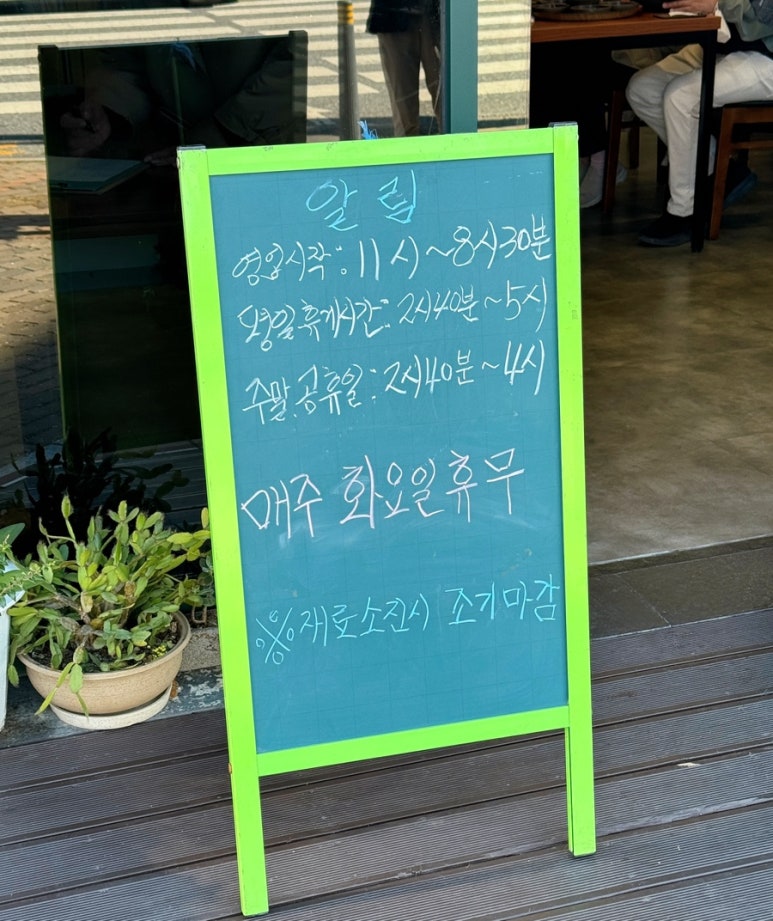 알림
영업시작: 11시~8시30분
평일휴게시간: 2시40분~5시
주말.공휴일: 2시40분~4시
매주 화요일휴무
※재료소진시 조기마감